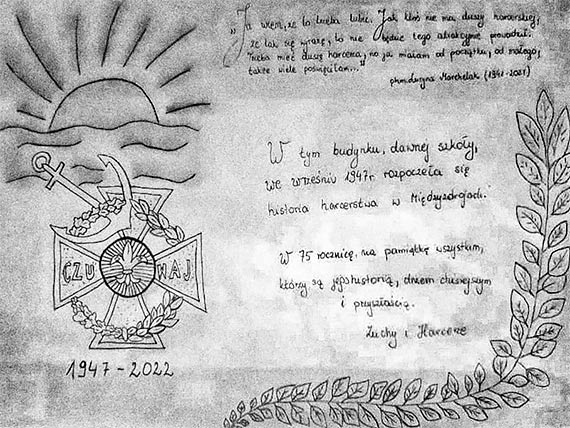 „Ja wiem, że to trzeba lubić. Jak ktoś nie ma duszy harcerskiej,
że tak się wyrażę, to nie będzie tego atrakcyjnie prowadził.
Trzeba mieć duszę harcerza, no ja miałam od początku, od małego,
takie wiele poświęciłam..."
phm. Marchelak (1941-2021)
W tym budynku, dawnej szkoły,
we wrześniu 1947r. rozpoczęła się
historia harcerstwa w Międzyzdrojach.
W 75 rocznicę, na pamiątkę wszystkim,
którzy są jej historią, dniem dzisiejszym
i przyszłością.
Zuchy i Harcerze
CZU WAJ
1947-2022